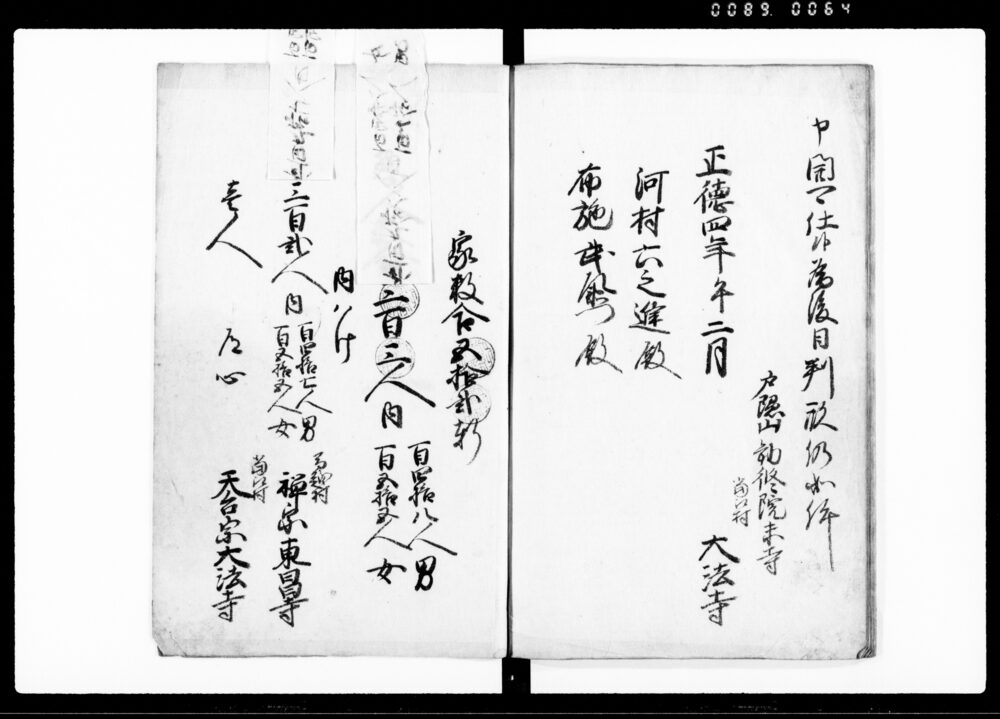 0089. 0064
申開可仕候為後日判形仍如件
戸隠山勧修院末寺
当村
大法寺
正徳四年午二月
河村六之進殿
布施武兵衛殿
家数合五拾弐軒
三百三人内
百四拾八人男
百五拾五人女
内わけ
三百弐人内
百四拾七人男
百五拾五人女
馬越村
禅宗東昌寺
壱人
道心
当村
天台宗大法寺